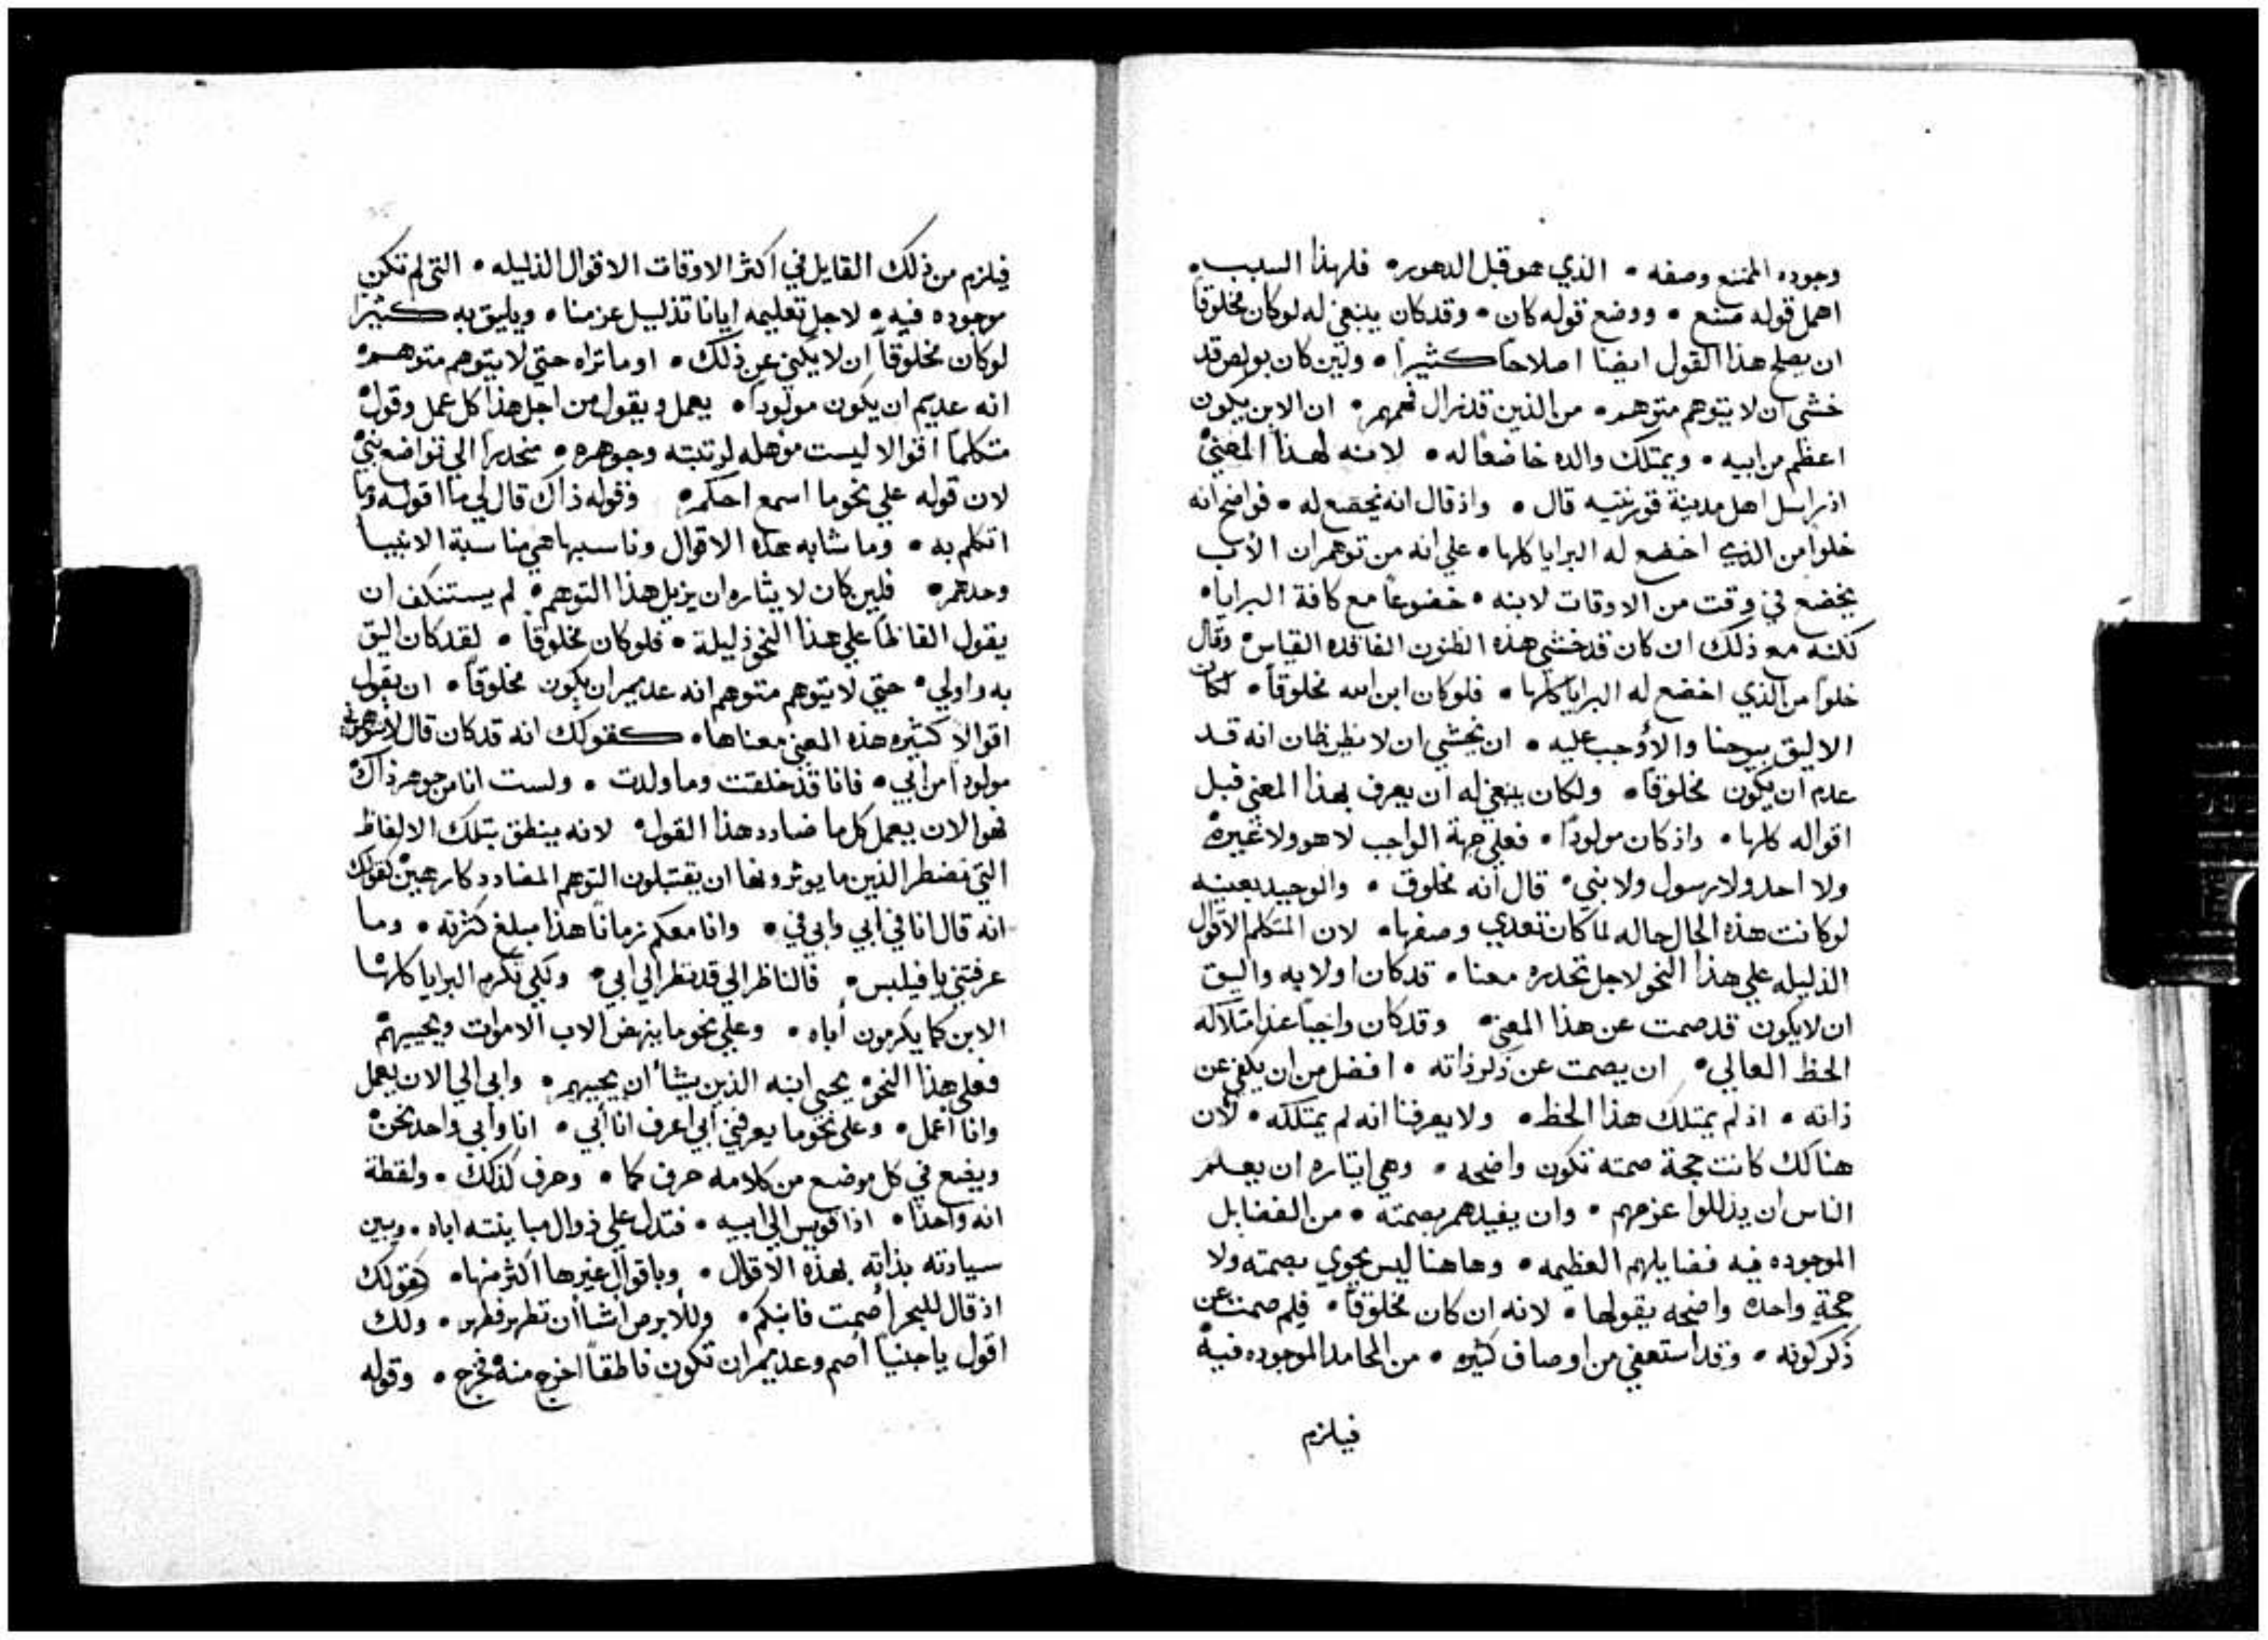 وجوده الممتنع وصفه • الذي هو قبل الدهور • فلهذا السبب •
اهمل قوله صنع • ووضع قوله كان • وقد كان ينبغي له لو كان مخلوقاً
ان يصلح هذا القول ايضا اصلاحاً كثيراً • ولين كان بولص قد
خشي ان لا يتوهم متوهم • من الذين قد زال فهمهم • ان الابن يكون
اعظم من ابيه • ويمتلك والده خاضعاً له • لانه لهذا المعني
اذ راسل اهل مدينة قورنتيه قال • واذ قال انه يخضع له • فواضح انه
خلوا من الذي اخضع له البرايا كلها • علي انه من توهم ان الاب
يخضع في وقت من الاوقات لابنه • خضوعاً مع كافة البرايا •
لكنه مع ذلك ان كان قد خشي هذه الظنون الفاقده القياس وقال
خلوا من الذي اخضع له البرايا كلها • فلو كان ابن الله مخلوقاً • لكان
الاليق بيوحنا والاوجب عليه • ان يخشي ان لا يظن ظان انه قد
عدم ان يكون مخلوقاً • ولكان ينبغي له ان يعرف بهذا المعني قبل
اقواله كلها • واذ كان مولوداً • فعلي جهة الواجب لا هو ولا غيره
ولا احد ولا رسول ولا نبي • قال انه مخلوق • والوحيد بعينه
لو كانت هذه الحال حاله لما كان تعدي وصفها • لان المتكلم الاقوال
الذليله علي هذا النحو لاجل تحدره معنا • قد كان اولا به واليق
ان لا يكون قد صمت عن هذا المعني • وقد كان واجباً عند امتلاكه
الحظ العالي • ان يصمت عن ذكر ذاته • افضل من ان يكفي عن
ذاته • اذ لم يمتلك هذا الحظ • ولا يعرفنا انه لم يمتلكه • لان
هنالك كانت حجة صمته تكون واضحه • وهي ايثاره ان يعلم
الناس ان يذللوا عزمهم • وان يفيدهم بصمته • من الفضايل
الموجوده فيه فضايلهم العظيمه • وهاهنا ليس يحوي بصمته ولا
حجة واحده واضحه يقولها • لانه ان كان مخلوقاً • فلم صمت عن
ذكر كونه • وقد استعفي من اوصاف كثيره • من المحامد الموجوده فيه
فيلزم
فيلزم من ذلك القايل في اكثر الاوقات الاقوال الذليله • التي لم تكن
موجوده فيه • لاجل تعليمه ايانا تذليل عزمنا • ويليق به كثيرا
لو كان مخلوقاً ان لا يكني عن ذلك • او ما تراه حتي لا يتوهم متوهم
انه عديم ان يكون مولوداً • يعمل ويقول من اجل هذا كل عمل وقول
متكلماً اقوالا ليست موهله لرتبته وجوهره • منحدراً الي تواضع نبي
لان قوله علي نحو ما اسمع احكم • وقوله ذاك قال لي ما اقوله وما
اتكلم به • وما شابه هذه الاقوال وناسبها هي مناسبة الانبيا
وحدهم • فلين كان لايثاره ان يزيل هذا التوهم • لم يستنكف ان
يقول الفاظاً علي هذا النحو ذليلة • فلو كان مخلوقاً • لقد كان اليق
به واولي • حتي لا يتوهم متوهم انه عديم ان يكون مخلوقاً • ان يقول
اقوالا كثيره هذه المعني معناها • كقولك انه قد كان قال لا تتوهموني
مولودا من ابي • فانا قد خلقت وما ولدت • ولست انا من جوهر ذاك
فهو الان يعمل كل ما ضادد هذا القول • لانه ينطق بتلك الالفاظ
التي تضطر الذين ما يوثرونها ان يقتبلون التوهم المضادد كارهين كقولك
انه قال انا في ابي وابي في • وانا معكم زماناً هذا مبلغ كثرته • وما
عرفتني يا فيلبس • فالناظر الي قد نظر الي ابي • ولكي تكرم البرايا كلها
الابن كما يكرمون اباه • وعلي نحو ما ينهض الاب الاموات ويحييهم
فعلي هذا النحو يحيي ابنه الذين يشا ان يحييهم • وابي الي الان يعمل
وانا اعمل • وعلي نحو ما يعرفني ابي اعرف انا ابي • انا وابي واحد نحن
ويضع في كل موضع من كلامه حرف كما • وحرف كذلك • ولفظة
انه واحدا • اذا قويس الي ابيه • فتدل علي زوال مباينته اياه • وبين
سيادته بذاته بهذه الاقوال • وباقوال غيرها اكثر منها • كقولك
اذ قال للبحر اصمت فانبكم • وللابرص اشا ان تطهر فطهر • ولك
اقول يا جنيا اصم وعديم ان تكون ناطقاً اخرج منه فخرج • وقوله